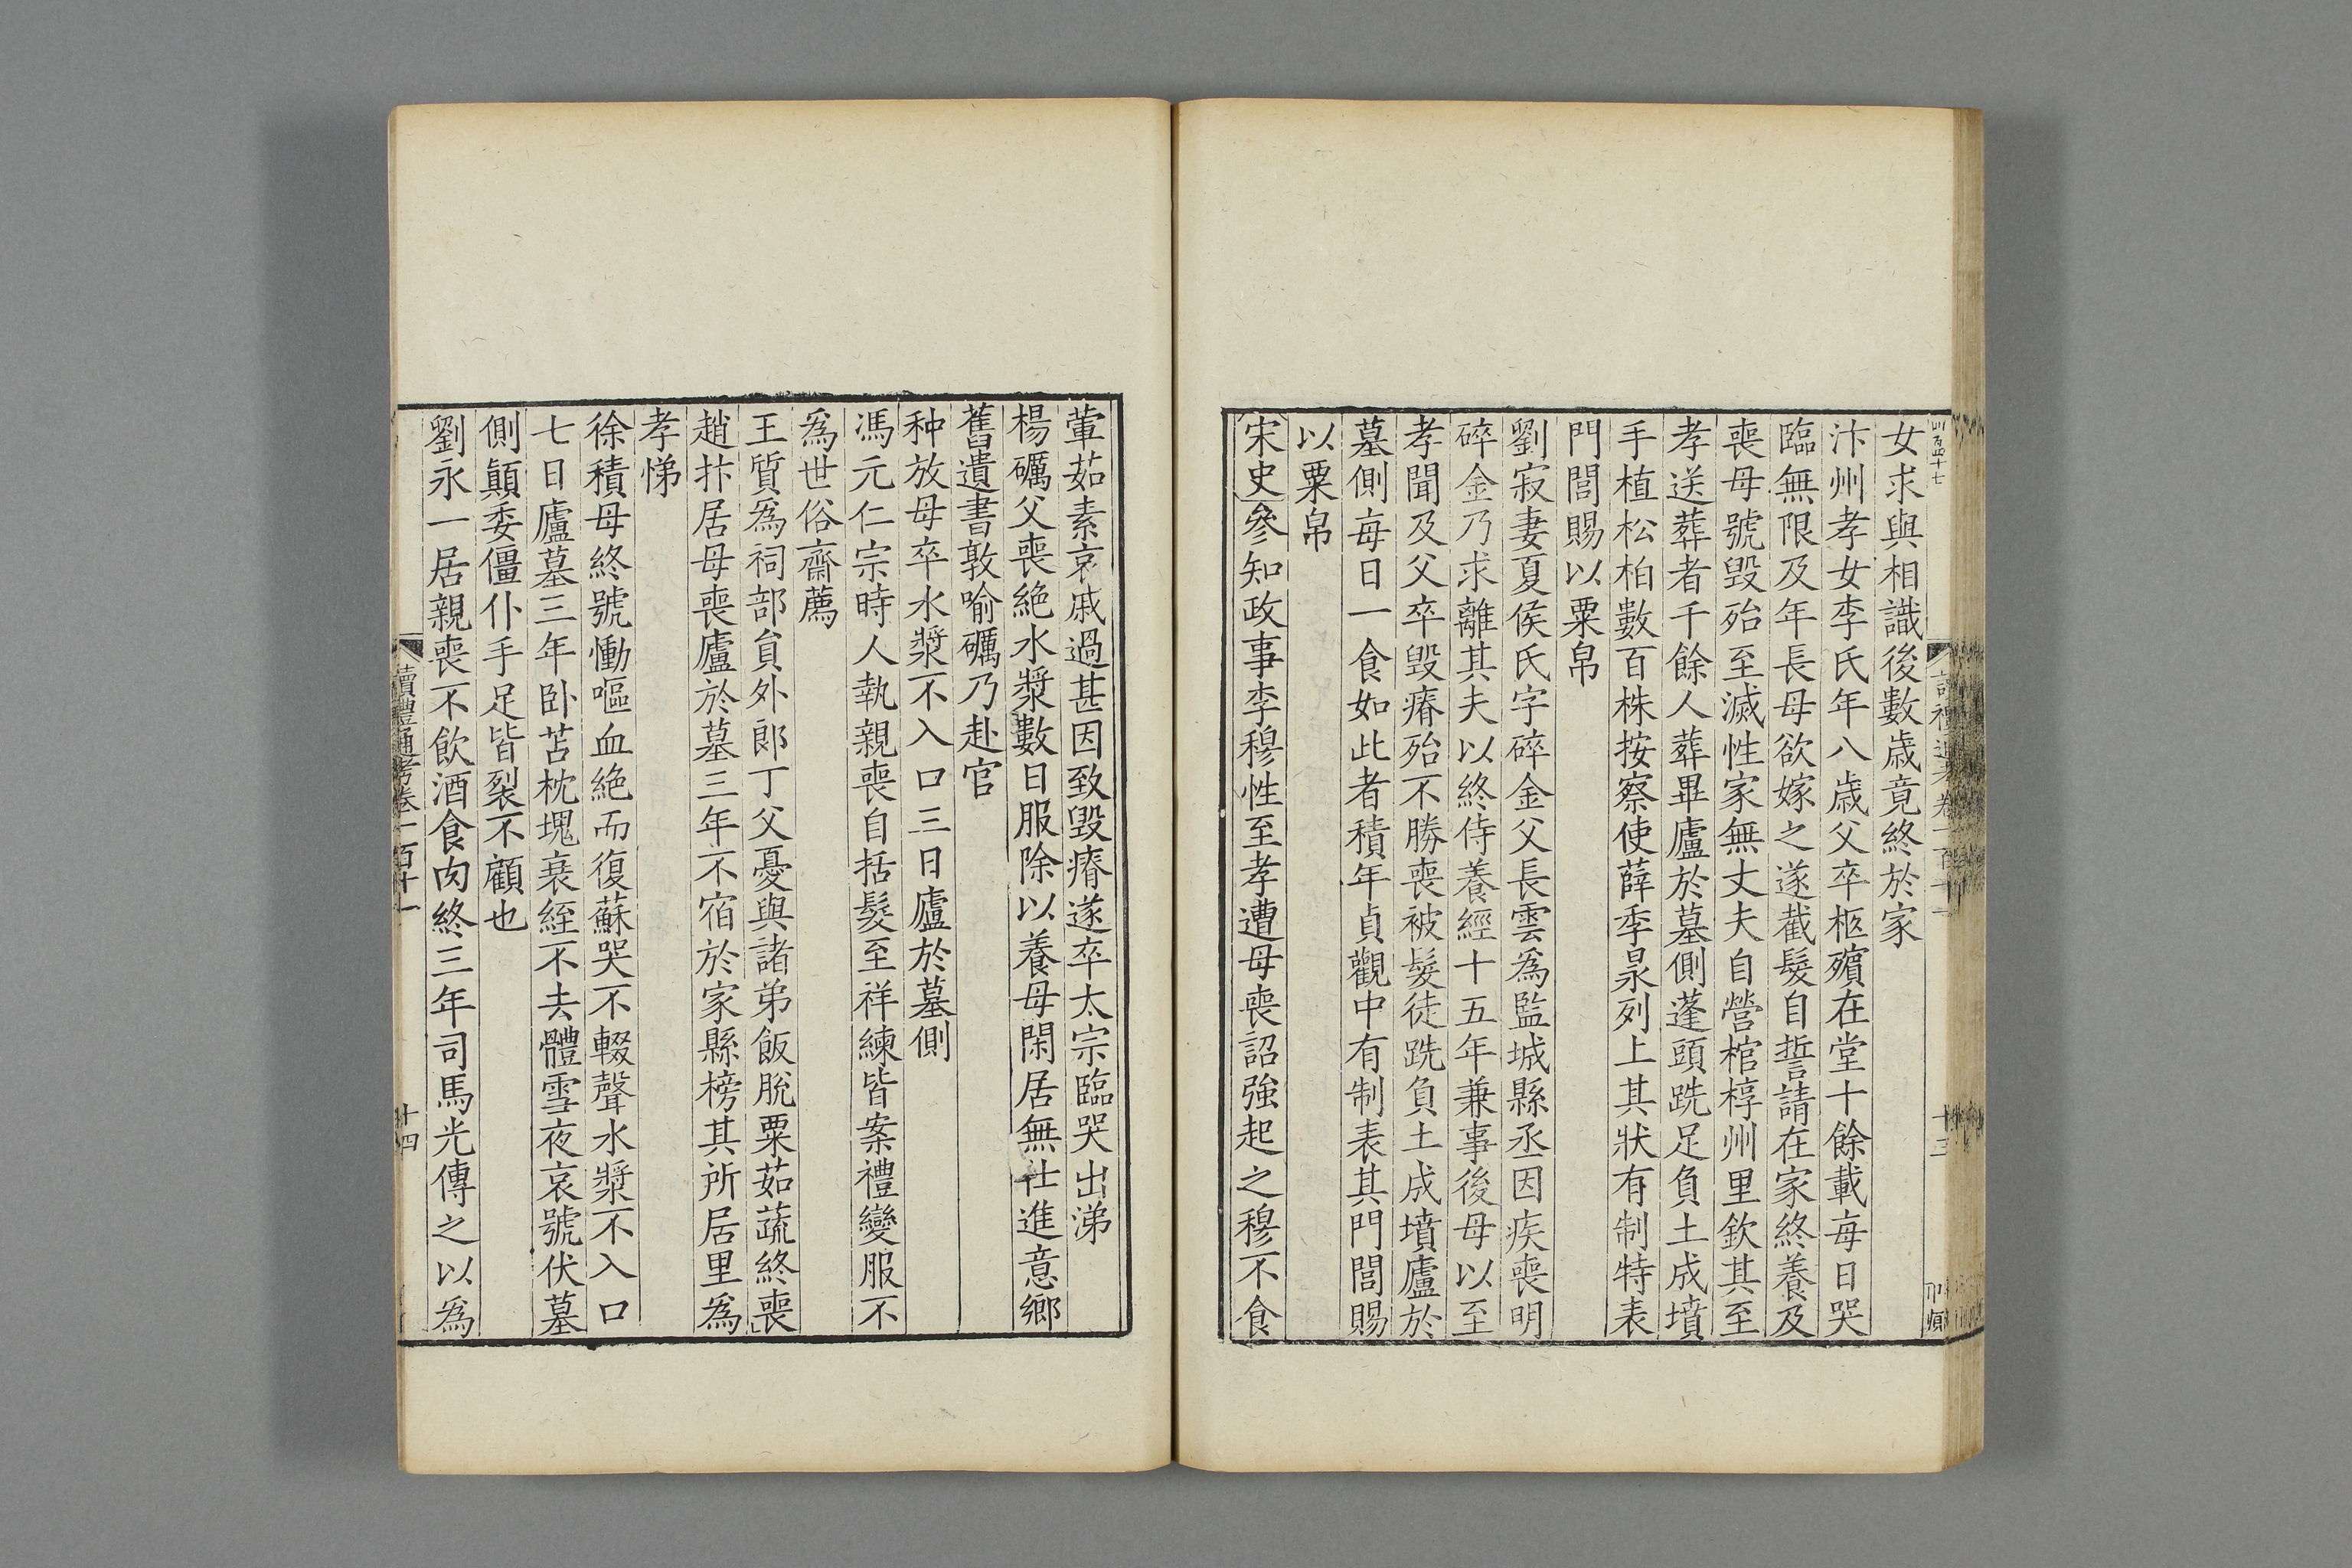 女求與相識後數歳竟終於家
汴州孝女李氏年八歳父卒柩殯在堂十餘載毎日哭
臨無限及年長母欲嫁之遂截髮自誓請在家終養及
喪母號毀殆至滅性家無丈夫自營棺椁州里欽其至
孝送葬者千餘人葬畢廬於墓側蓬頭跣足負土成墳
手植松柏數百株按察使薛季杲列上其狀有制特表
門閭賜以粟帛
劉寂妻夏侯氏字碎金父長雲為監城縣丞因疾喪明
碎金乃求離其夫以終侍養經十五年兼事後母以至
孝聞及父卒毀瘠殆不勝喪被髮徒跣負土成墳廬於
墓側毎日一食如此者積年貞觀中有制表其門閭賜
以粟帛
宋史參知政事李穆性至孝遭母喪詔強起之穆不食
葷茹素哀戚過甚因致毀瘠遂卒太宗臨哭出涕
楊礪父喪絶水漿數日服除以養母閑居無仕進意鄉
舊遺書敦喻礪乃赴官
种放母卒水漿不入口三日廬於墓側
馮元仁宗時人執親喪自括髮至祥練皆案禮變服不
為世俗齋薦
王質為祠部員外郎丁父憂與諸弟飯脫粟茹蔬終喪
趙抃居母喪廬於墓三年不宿於家縣榜其所居里為
孝悌
徐積母終號慟嘔血絶而復蘇哭不輟聲水漿不入口
七日廬墓三年卧苫枕塊衰絰不去體雪夜哀號伏墓
側顛委僵仆手足皆裂不顧也
劉永一居親喪不飲酒食肉終三年司馬光傳之以為
讀禮通考卷一百十一
十四